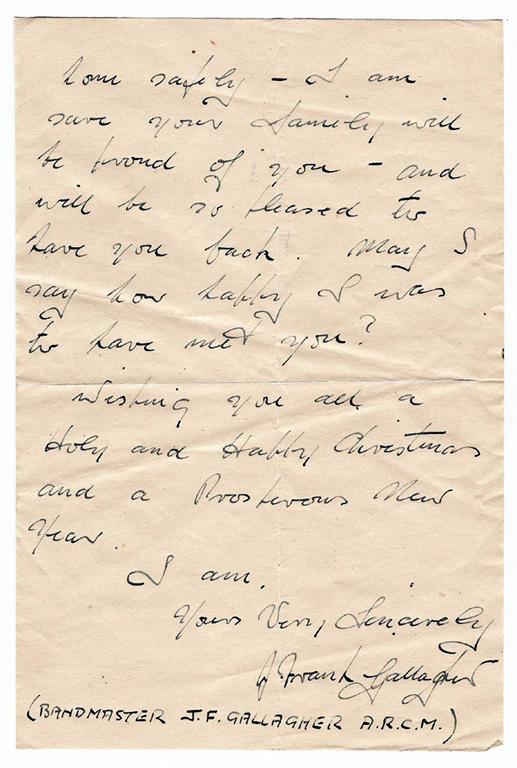 home safely – I am
sure your family will
be proud of you – and
will be so pleased to
have you back. May I
say how happy I was
to have met you?
Wishing you all a
Holy and Happy Christmas
and a Prosperous New
Year
I am.
Yours Very Sincerely
J Frank Gallagher
(BANDMASTER J.F. GALLAGHER A.R.C.M.)